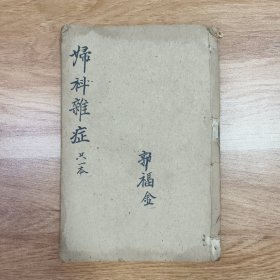 婦科雜症
共一本
郭福金